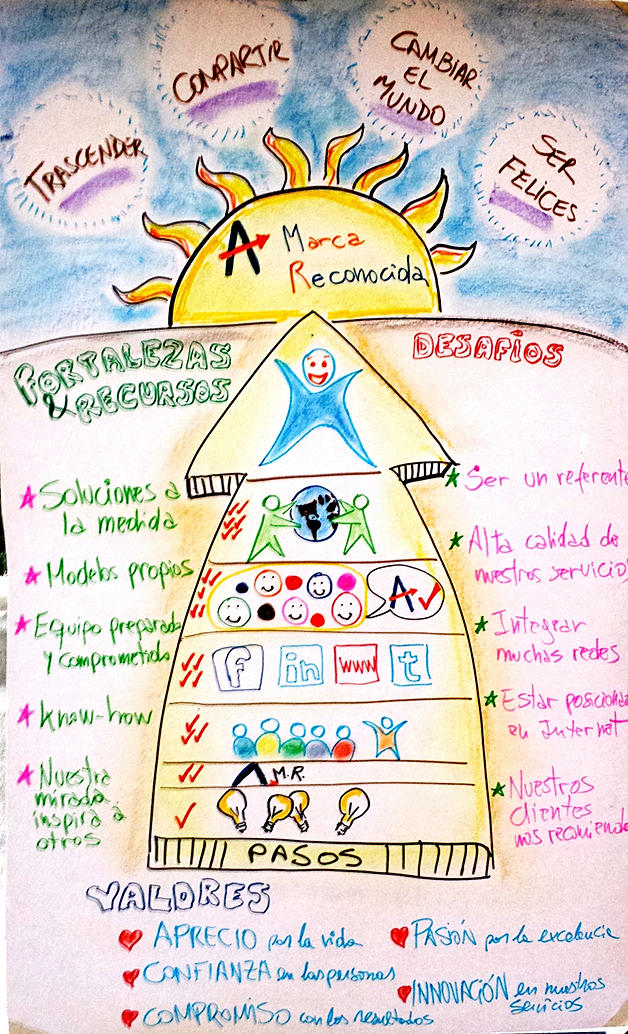 TRASCENDER
COMPARTIR
CAMBIAR
EL
MUNDO
SER
FELICES
A Marca
Reconocida
FORTALEZAS
& RECURSOS
DESAFIOS
Soluciones a
la medida
Modelos propios
Equipo preparado
y comprometido
Know-how
Nuestra
mirada
inspira a
otros
Ser un referente
Alta calidad de
nuestros servicios
Integrar
muchas redes
Estar posicionad
en Internet
Nuestros
clientes
nos recomienda
A
f in www t
M.R.
PASOS
VALORES
APRECIO por la vida
CONFIANZA en las personas
COMPROMISO con los resultados
PASIÓN por la excelencia
INNOVACIÓN en nuestros
servicios